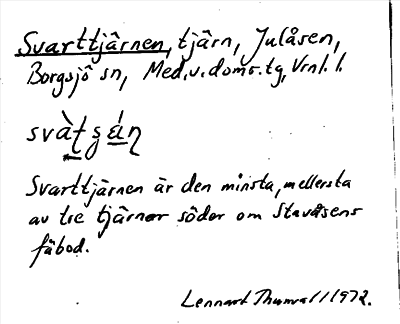 Svarttjärnen, tjärn, Julåsen,
Borgsjö sn, Med.v.doms.tg, Vrnl. l.
svàt
Svarttjärnen är den minsta, mellersta
av tre tjärnar söder om Stavåsens
fäbod.
Lennart Thunvall 1972.